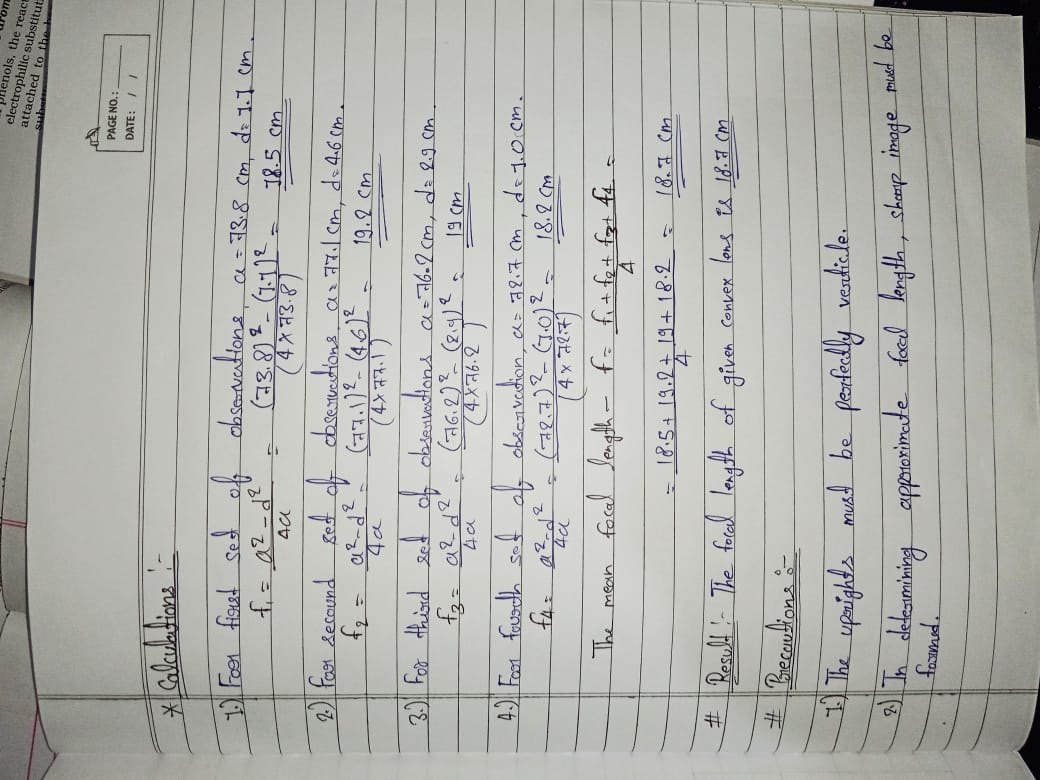 phenols, the reac
electrophilic substitut
attached to the
PAGE NO.:
DATE: / /
* Calculations :-
1.) For first set of observations, a = 73.8 cm, d = 1.1 cm.
f₁ = a² – d² / 4a = (73.8)² – (1.1)² / (4 × 73.8) = 18.5 cm
2.) For secound set of observations a = 77.1 cm, d = 4.6 cm.
f₂ = a² – d² / 4a = (77.1)² – (4.6)² / (4 × 77.1) = 19.2 cm
3.) For third set of observations a = 76.2 cm, d = 2.9 cm.
f₃ = a² – d² / 4a = (76.2)² – (2.9)² / (4 × 76.2) = 19 cm
4.) For fourth set of observation, a = 72.7 cm, d = 1.0 cm.
f₄ = a² – d² / 4a = (72.7)² – (1.0)² / (4 × 72.7) = 18.2 cm
The mean focal length – f = f₁ + f₂ + f₃ + f₄ / 4 =
= 18.5 + 19.2 + 19 + 18.2 / 4 = 18.7 cm
# Result :- The focal length of given convex lens is 18.7 cm
# Precautions :-
1.) The uprights must be perfectly verticle.
2.) In determining approximate focal length, sharp image must be
formed.